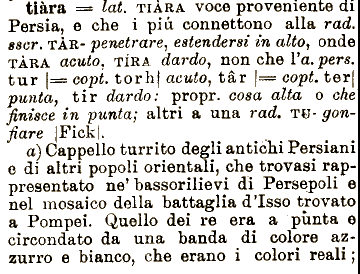 tiàra = lat. TIÀRA voce proveniente di
Persia, e che i piú connettono alla rad.
sscr. TÂR- penetrare, estendersi in alto, onde
TÀRA acuto, TÍRA dardo, non che l'a. pers.
tur |= copt. torh| acuto, târ |= copt. ter|
punta, tir dardo: propr. cosa alta o che
finisce in punta; altri a una rad. TU- gon-
fiare |Fick|.
a) Cappello turrito degli antichi Persiani
e di altri popoli orientali, che trovasi rap-
presentato ne' bassorilievi di Persepoli e
nel mosaico della battaglia d'Isso trovato
a Pompei. Quello dei re era a punta e
circondato da una banda di colore az-
zurro e bianco, che erano i colori reali;